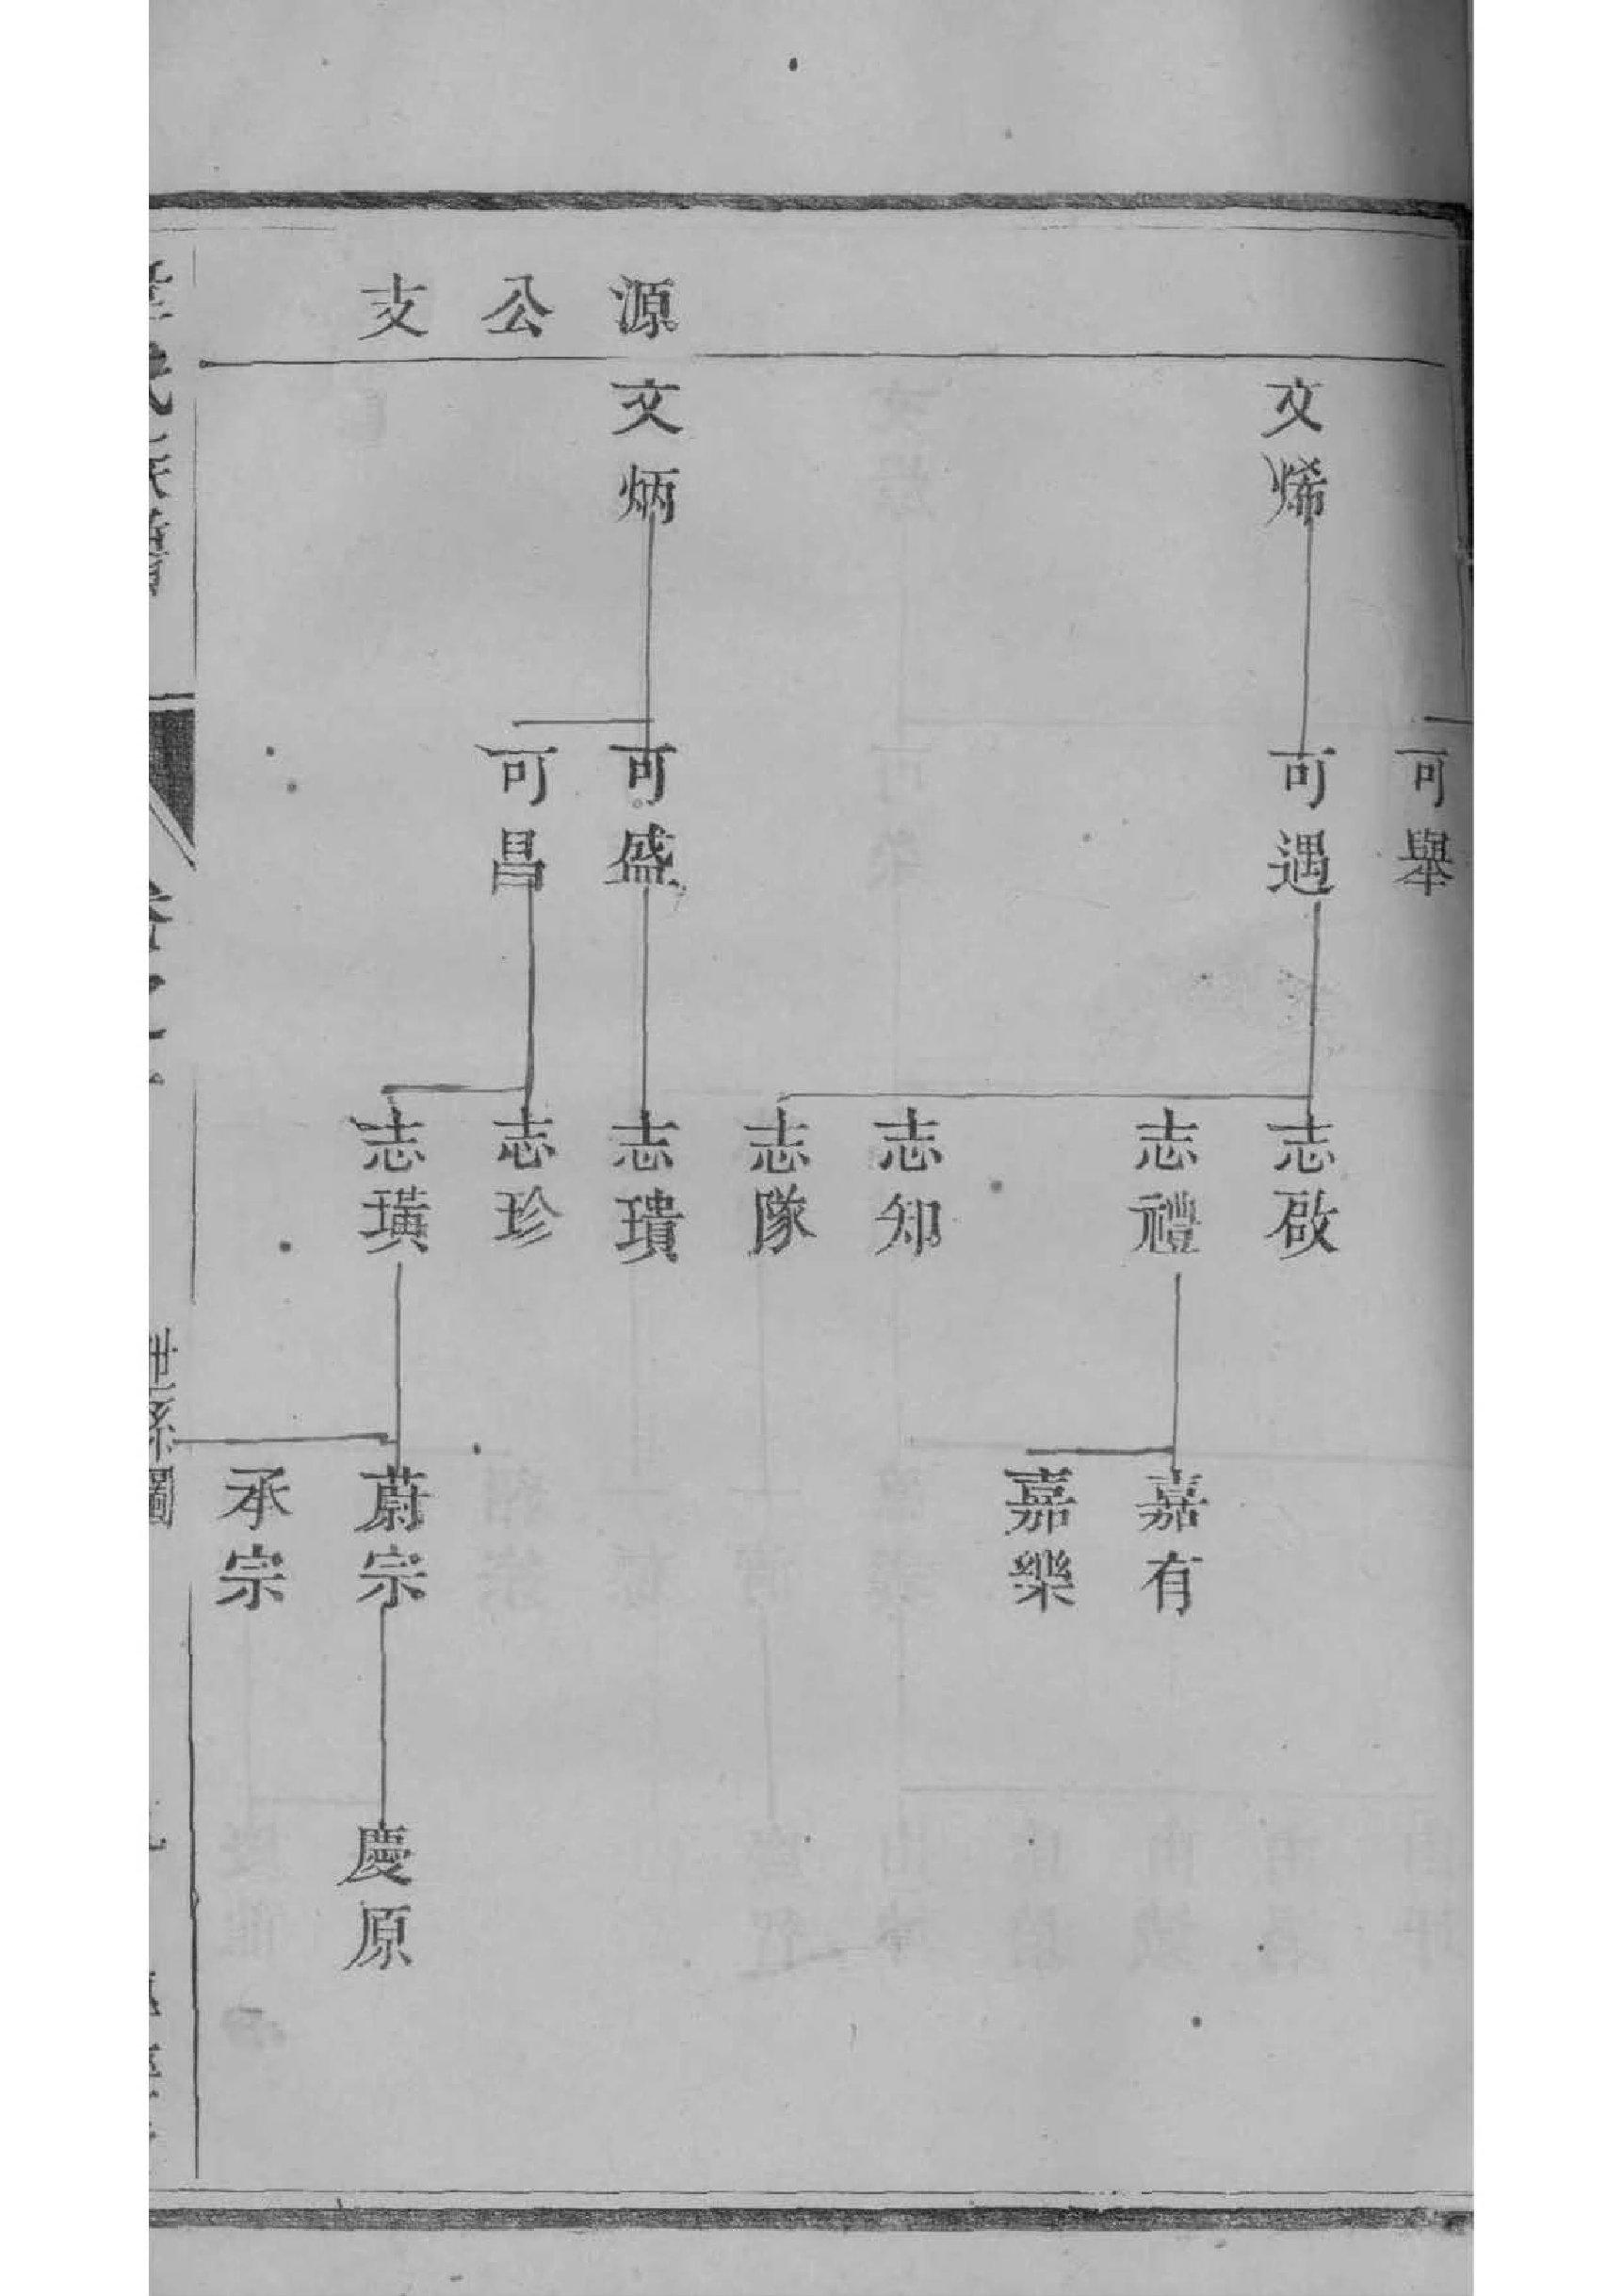 源公支
文烯
文炳
可舉
可遇
可盛
可昌
志啟
志禮
志知
志隊
志璝
志珍
志璜
嘉有
嘉樂
蔚宗
承宗
慶原
世系圖